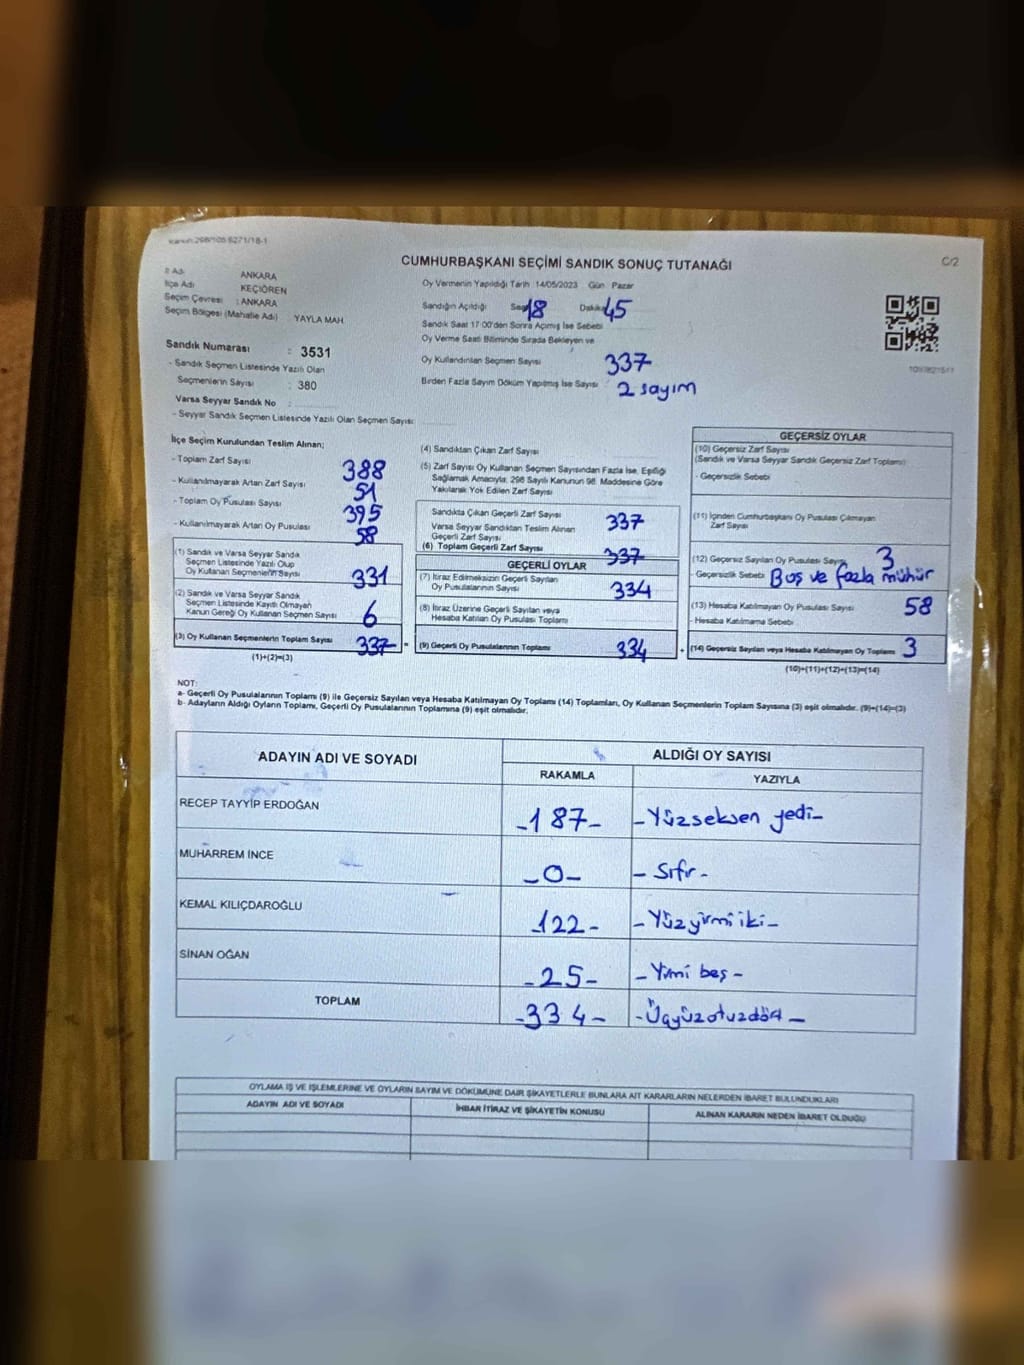 Kanun:298/105 6271/18-1
CUMHURBAŞKANI SEÇİMİ SANDIK SONUÇ TUTANAĞI
C/2
İl Adı ANKARA
İlçe Adı KEÇİÖREN
Seçim Çevresi : ANKARA
Seçim Bölgesi (Mahalle Adı) YAYLA MAH.
Sandık Numarası : 3531
- Sandık Seçmen Listesinde Yazılı Olan
Seçmenlerin Sayısı : 380
Varsa Seyyar Sandık No :
- Seyyar Sandık Seçmen Listesinde Yazılı Olan Seçmen Sayısı:
Oy Vermenin Yapıldığı Tarih 14/05/2023 Gün Pazar
Sandığın Açıldığı Saat 18 Dakika 45
Sandık Saat 17:00'den Sonra Açılmış İse Sebebi
Oy Verme Saati Bitiminde Sırada Bekleyen ve
Oy Kullandırılan Seçmen Sayısı 337
Birden Fazla Sayım Döküm Yapılmış İse Sayısı : 2 sayım
İlçe Seçim Kurulundan Teslim Alınan;
- Toplam Zarf Sayısı 388
- Kullanılmayarak Artan Zarf Sayısı 51
- Toplam Oy Pusulası Sayısı 395
- Kullanılmayarak Artan Oy Pusulası 58
(1) Sandık ve Varsa Seyyar Sandık
Seçmen Listesinde Yazılı Olup
Oy Kullanan Seçmenlerin Sayısı 331
(2) Sandık ve Varsa Seyyar Sandık
Seçmen Listesinde Kayıtlı Olmayan
Kanun Gereği Oy Kullanan Seçmen Sayısı 6
(3) Oy Kullanan Seçmenlerin Toplam Sayısı 337 =
(1)+(2)=(3)
(4) Sandıktan Çıkan Zarf Sayısı
(5) Zarf Sayısı Oy Kullanan Seçmen Sayısından Fazla İse, Eşitliği
Sağlamak Amacıyla; 298 Sayılı Kanunun 98. Maddesine Göre
Yakılarak Yok Edilen Zarf Sayısı
Sandıkta Çıkan Geçerli Zarf Sayısı 337
Varsa Seyyar Sandıktan Teslim Alınan
Geçerli Zarf Sayısı
(6) Toplam Geçerli Zarf Sayısı 337
GEÇERLİ OYLAR
(7) İtiraz Edilmeksizin Geçerli Sayılan
Oy Pusulalarının Sayısı 334
(8) İtiraz Üzerine Geçerli Sayılan veya
Hesaba Katılan Oy Pusulası Toplamı
(9) Geçerli Oy Pusulalarının Toplamı 334 +
GEÇERSİZ OYLAR
(10) Geçersiz Zarf Sayısı
(Sandık ve Varsa Seyyar Sandık Geçersiz Zarf Toplamı)
- Geçersizlik Sebebi
(11) İçinden Cumhurbaşkanı Oy Pusulası Çıkmayan
Zarf Sayısı
(12) Geçersiz Sayılan Oy Pusulası Sayısı 3
- Geçersizlik Sebebi Boş ve fazla mühür
(13) Hesaba Katılmayan Oy Pusulası Sayısı 58
- Hesaba Katılmama Sebebi
(14) Geçersiz Sayılan veya Hesaba Katılmayan Oy Toplamı 3
(10)+(11)+(12)+(13)=(14)
NOT:
a- Geçerli Oy Pusulalarının Toplamı (9) ile Geçersiz Sayılan veya Hesaba Katılmayan Oy Toplamı (14) Toplamları, Oy Kullanan Seçmenlerin Toplam Sayısına (3) eşit olmalıdır. (9)+(14)=(3)
b- Adayların Aldığı Oyların Toplamı, Geçerli Oy Pusulalarının Toplamına (9) eşit olmalıdır.
ADAYIN ADI VE SOYADI ALDIĞI OY SAYISI
RAKAMLA YAZIYLA
RECEP TAYYİP ERDOĞAN -187- -Yüzseksen yedi-
MUHARREM İNCE -0- - Sıfır -
KEMAL KILIÇDAROĞLU -122- -Yüzyirmi iki-
SİNAN OĞAN -25- -Yirmi beş-
TOPLAM -334- -Üçyüzotuzdört-
OYLAMA İŞ VE İŞLEMLERİNE VE OYLARIN SAYIM VE DÖKÜMÜNE DAİR ŞİKAYETLERLE BUNLARA AİT KARARLARIN NELERDEN İBARET BULUNDUKLARI
ADAYIN ADI VE SOYADI İHBAR İTİRAZ VE ŞİKAYETİN KONUSU ALINAN KARARIN NEDEN İBARET OLDUĞU